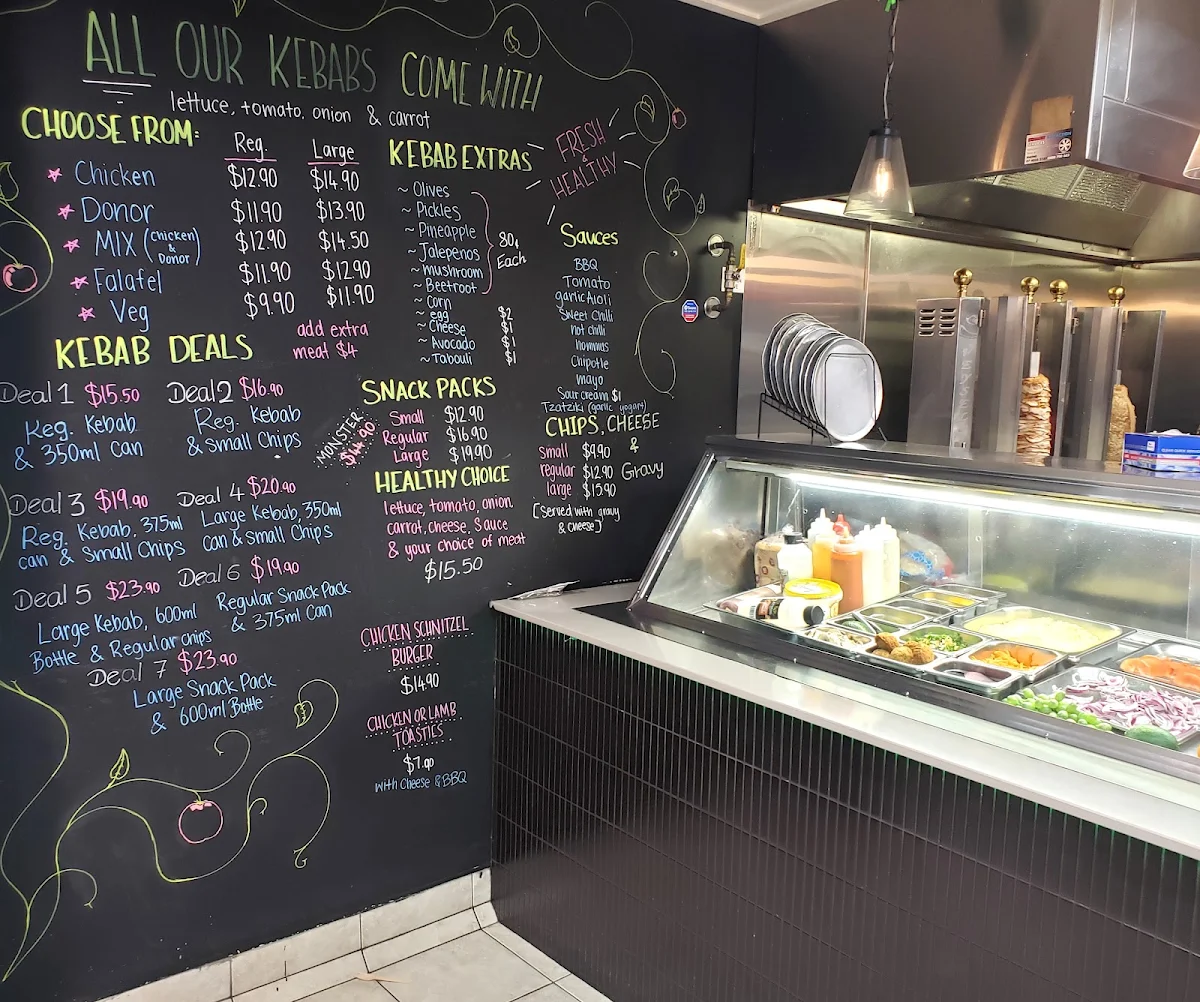 ALL OUR KEBABS COME WITH
lettuce, tomato, onion & carrot
CHOOSE FROM:
Reg. Large
Chicken $12.90 $14.90
Donor $11.90 $13.90
MIX (chicken & Donor) $12.90 $14.50
Falafel $11.90 $12.90
Veg $9.90 $11.90
add extra
meat $4
KEBAB EXTRAS
~ Olives
~ Pickles
~ Pineapple
~ Jalepenos
~ mushroom
~ Beetroot
80¢
Each
~ corn
~ egg $2
~ Cheese $1
~ Avocado $1
~ Tabouli $1
FRESH
&
HEALTHY
Sauces
BBQ
Tomato
garlic Aioli
Sweet Chilli
hot chilli
hommus
Chipotle
mayo
Sour cream $1
Tzatziki (garlic yogurt)
KEBAB DEALS
Deal 1 $15.50
Reg. Kebab
& 350ml Can
Deal 2 $16.90
Reg. Kebab
& small Chips
Deal 3 $19.90
Reg. Kebab, 375ml
can & Small Chips
Deal 4 $20.90
Large Kebab, 350ml
can & small Chips
Deal 5 $23.90
Large Kebab, 600ml
Bottle & Regular chips
Deal 6 $19.90
Regular Snack Pack
& 375ml Can
Deal 7 $23.90
Large Snack Pack
& 600ml Bottle
SNACK PACKS
Small $12.90
Regular $16.90
Large $19.90
MONSTER
$44.90
HEALTHY CHOICE
lettuce, tomato, onion,
carrot, cheese, Sauce
& your choice of meat
$15.50
CHIPS, CHEESE
&
Gravy
small $9.90
regular $12.90
large $15.90
[Served with gravy
& cheese]
CHICKEN SCHNITZEL
BURGER
$14.90
CHICKEN OR LAMB
TOASTIES
$7.90
with Cheese & BBQ